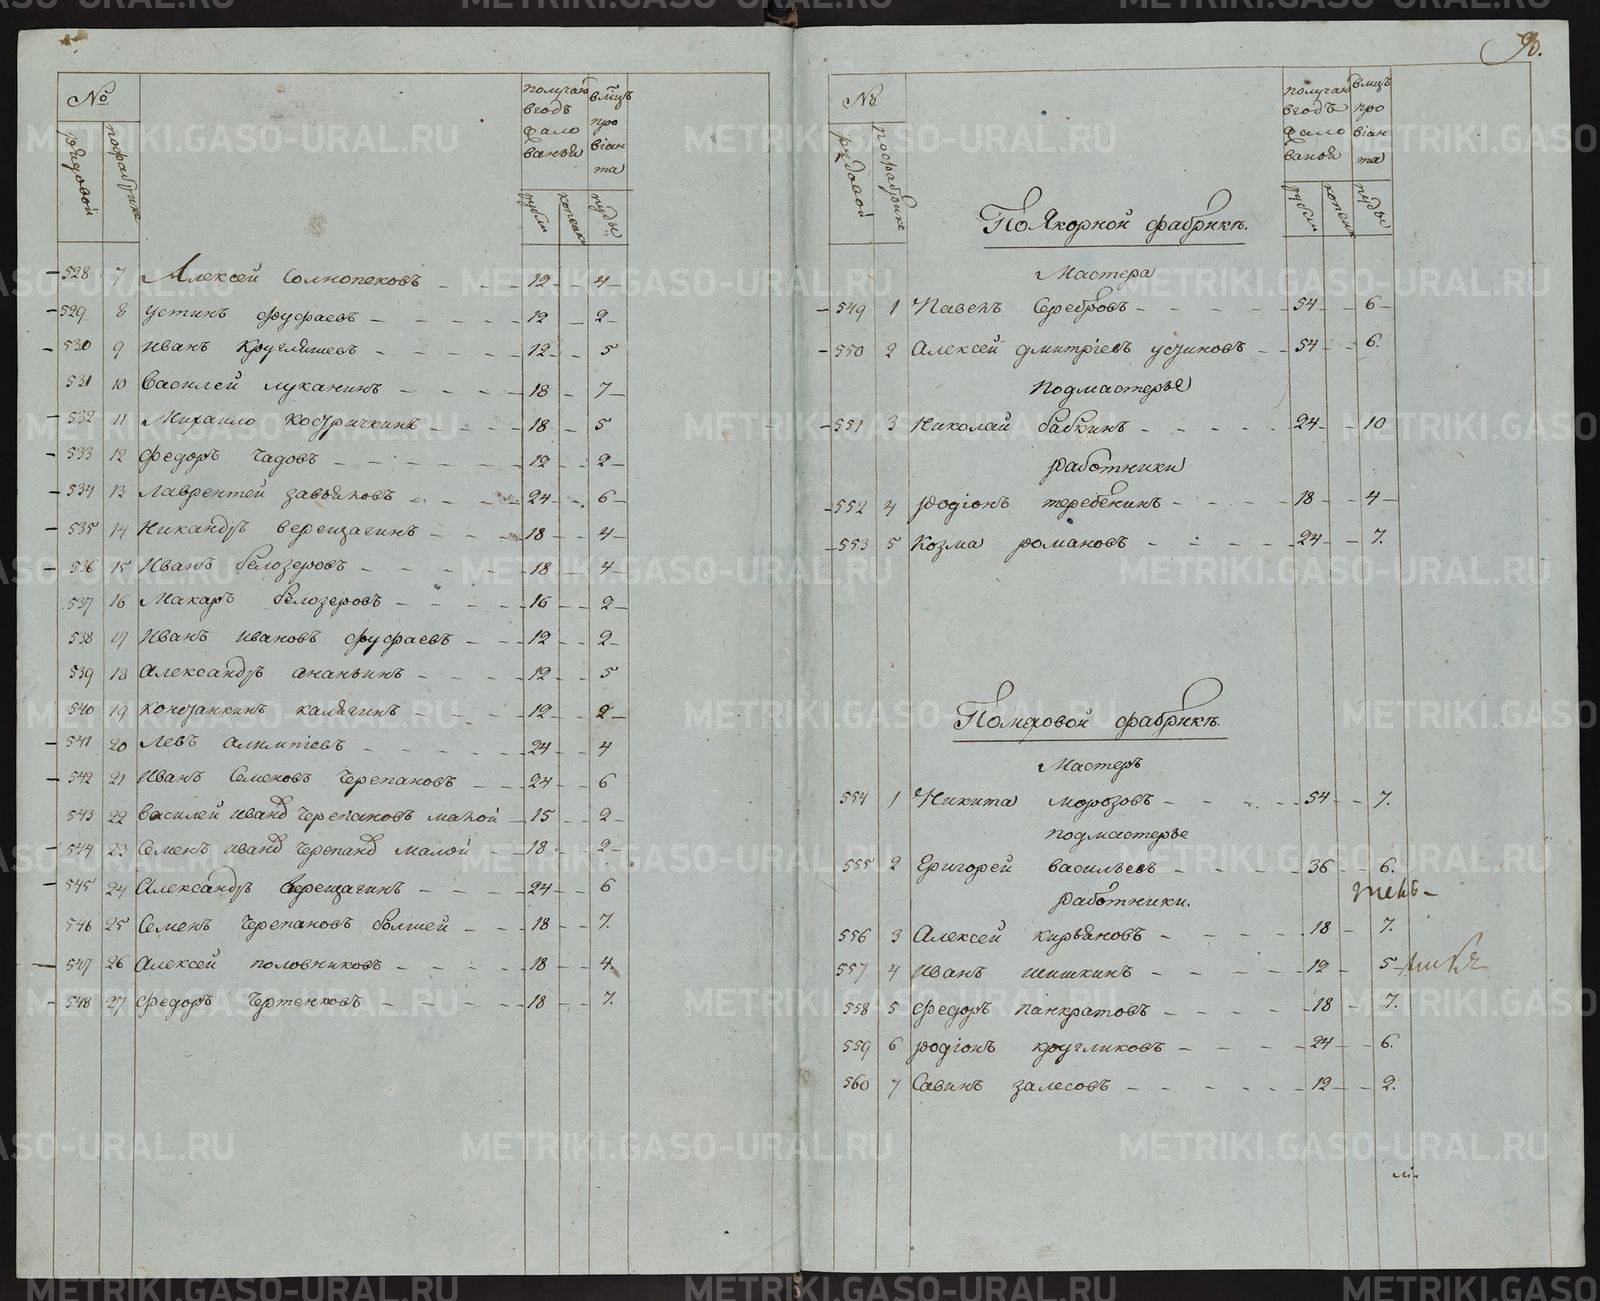 №
рядовой
пофабрике
получаю
вгодъ
жало
ванья
вмцъ
про
віан
та
рубли
копеики
пуды
528 7 Алексей Солнопековъ 12 4
529 8 Устинъ фуфаевъ 12 2
530 9 Иванъ Кругляшевъ 12 5
531 10 Василей луканинъ 18 7
532 11 Михаило Костричкинъ 18 5
533 12 Федоръ Чадовъ 12 2
534 13 Лаврентей завьяловъ 24 6
535 14 Никандръ верещагинъ 18 4
536 15 Иванъ белозеровъ 18 4
537 16 Макаръ белозеровъ 16 2
538 17 Иванъ ивановъ фуфаевъ 12 2
539 18 Александръ ананьинъ 12 5
540 19 Констанкинъ калягинъ 12 2
541 20 Левъ алимпіевъ 24 4
542 21 Иванъ Семеновъ Черепановъ 24 6
543 22 Василей иванов Черепановъ малой 15 2
544 23 Семенъ иванов Черепанов малой 18 2
545 24 Александръ верещагинъ 24 6
546 25 Семенъ Черепановъ болшей 18 7.
547 26 Алексей половниковъ 18 4.
548 27 Федоръ Чертенковъ 18 7.
90.
№
рядовой
пофабрике
получаю
вгодъ
жало
ванья
вмцъ
про
віан
та
рубли
копеик
пуды
По Якорной фабрикъ.
Мастера
549 1 Павелъ Серебровъ 54 6
550 2 Алексей дмитріевъ устиновъ 54 6.
Подмастерье
551 3 Николай бабкинъ 24 10
работники
552 4 родіонъ теребенинъ 18 4
553 5 Козма романовъ 24 7.
Помяховой фабрикъ.
Мастеръ
554 1 Никита морозовъ 54 7.
подмастерье
555 2 Григорей васильевъ 36 6.
работники.
556 3 Алексей кирьяновъ 18 7.
557 4 Иванъ шишкинъ 12 5
558 5 Федоръ панкратовъ 18 7.
559 6 родіонъ кругликовъ 24 6.
560 7 Савинъ залесовъ 12 2.
METRIKI.GASO-URAL.RU